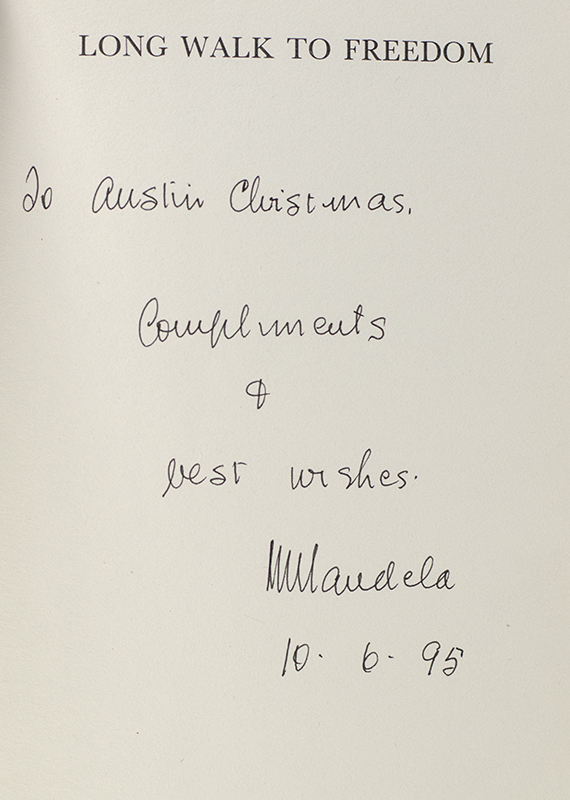 LONG WALK TO FREEDOM
To Austin Christmas,
Compliments
&
best wishes.
NMandela
10. 6. 95